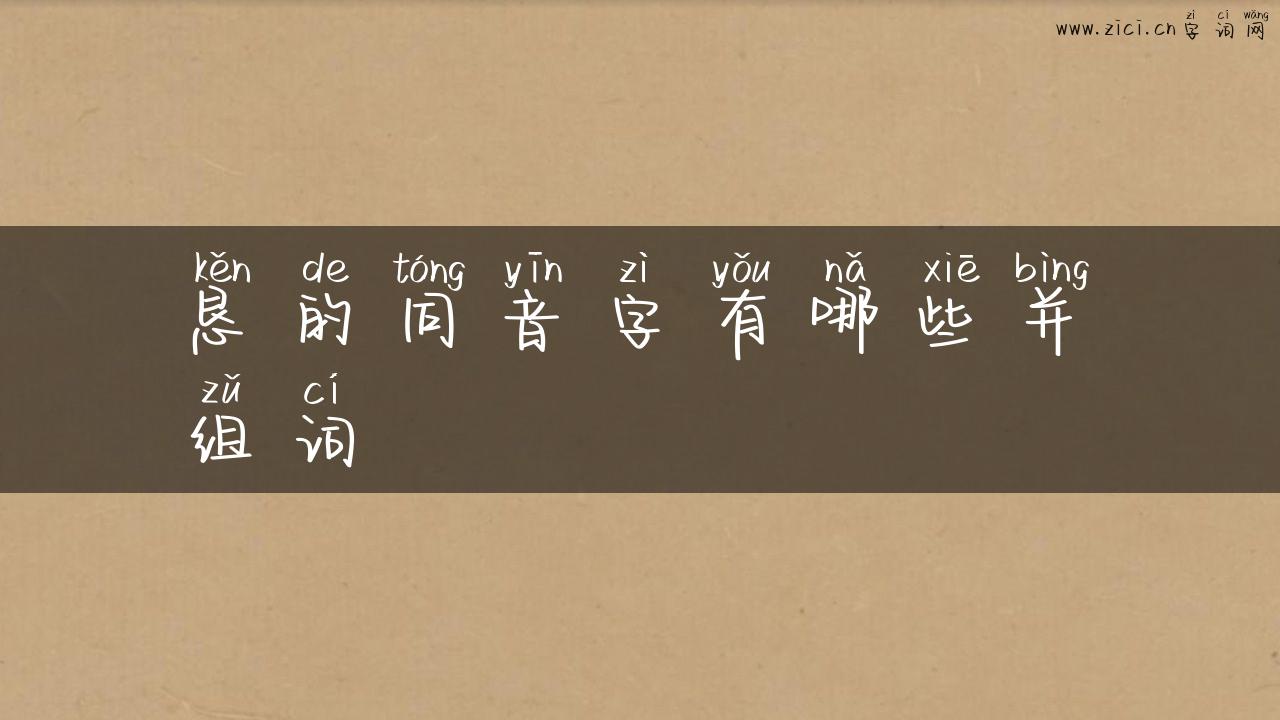 zì cí wǎng
www.zici.cn 字词网
kěn de tóng yīn zì yǒu nǎ xiē bìng
恳的同音字有哪些并
zǔ cí
组词